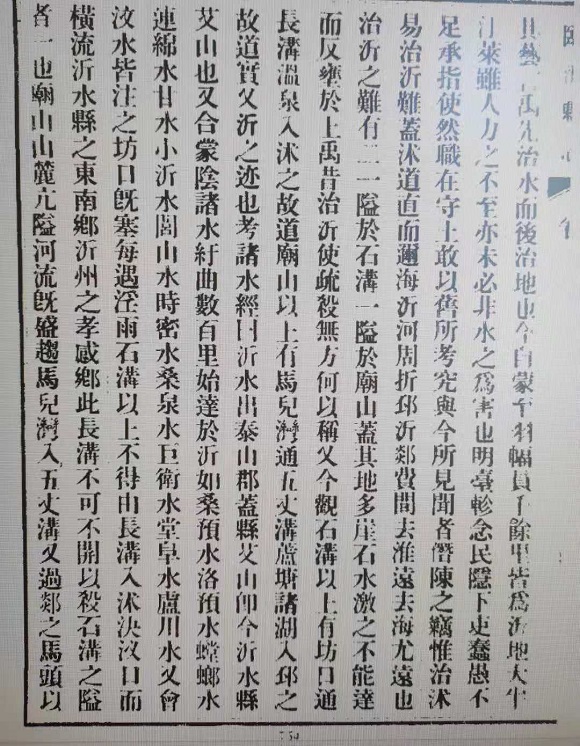 縣
其藝言禹先治水而後治地也今自蒙至羽幅員千餘里皆爲沂地大半
汙萊雖人力之不至亦未必非水之爲害也明臺軫念民隱下吏蠢愚不
足承指使然職在守土敢以舊所考究與今所見聞者僭陳之竊惟治沭
易治沂難蓋沭道直而邇海沂河周折邳沂郯費間去淮遠去海尤遠也
治沂之難有二一隘於石溝一隘於廟山蓋其地多崖石水激之不能達
而反壅於上禹昔治沂使疏殺無方何以稱乂今觀石溝以上有坊口通
長溝溫泉入沭之故道廟山以上有馬兒灣通五丈溝蘆塘諸湖入邳之
故道實乂沂之迹也考諸水經曰沂水出泰山郡蓋縣艾山卽今沂水縣
艾山也又合蒙陰諸水紆曲數百里始達於沂如桑預水洛預水螳螂水
連綿水甘水小沂水閭山水時密水桑泉水巨衛水堂阜水盧川水又會
汶水皆注之坊口旣塞每遇淫雨石溝以上不得由長溝入沭決汶口而
橫流沂水縣之東南鄉沂州之孝感鄉此長溝不可不開以殺石溝之隘
者一也廟山山麓亢隘河流旣盛趨馬兒灣入五丈溝又過郯之馬頭以